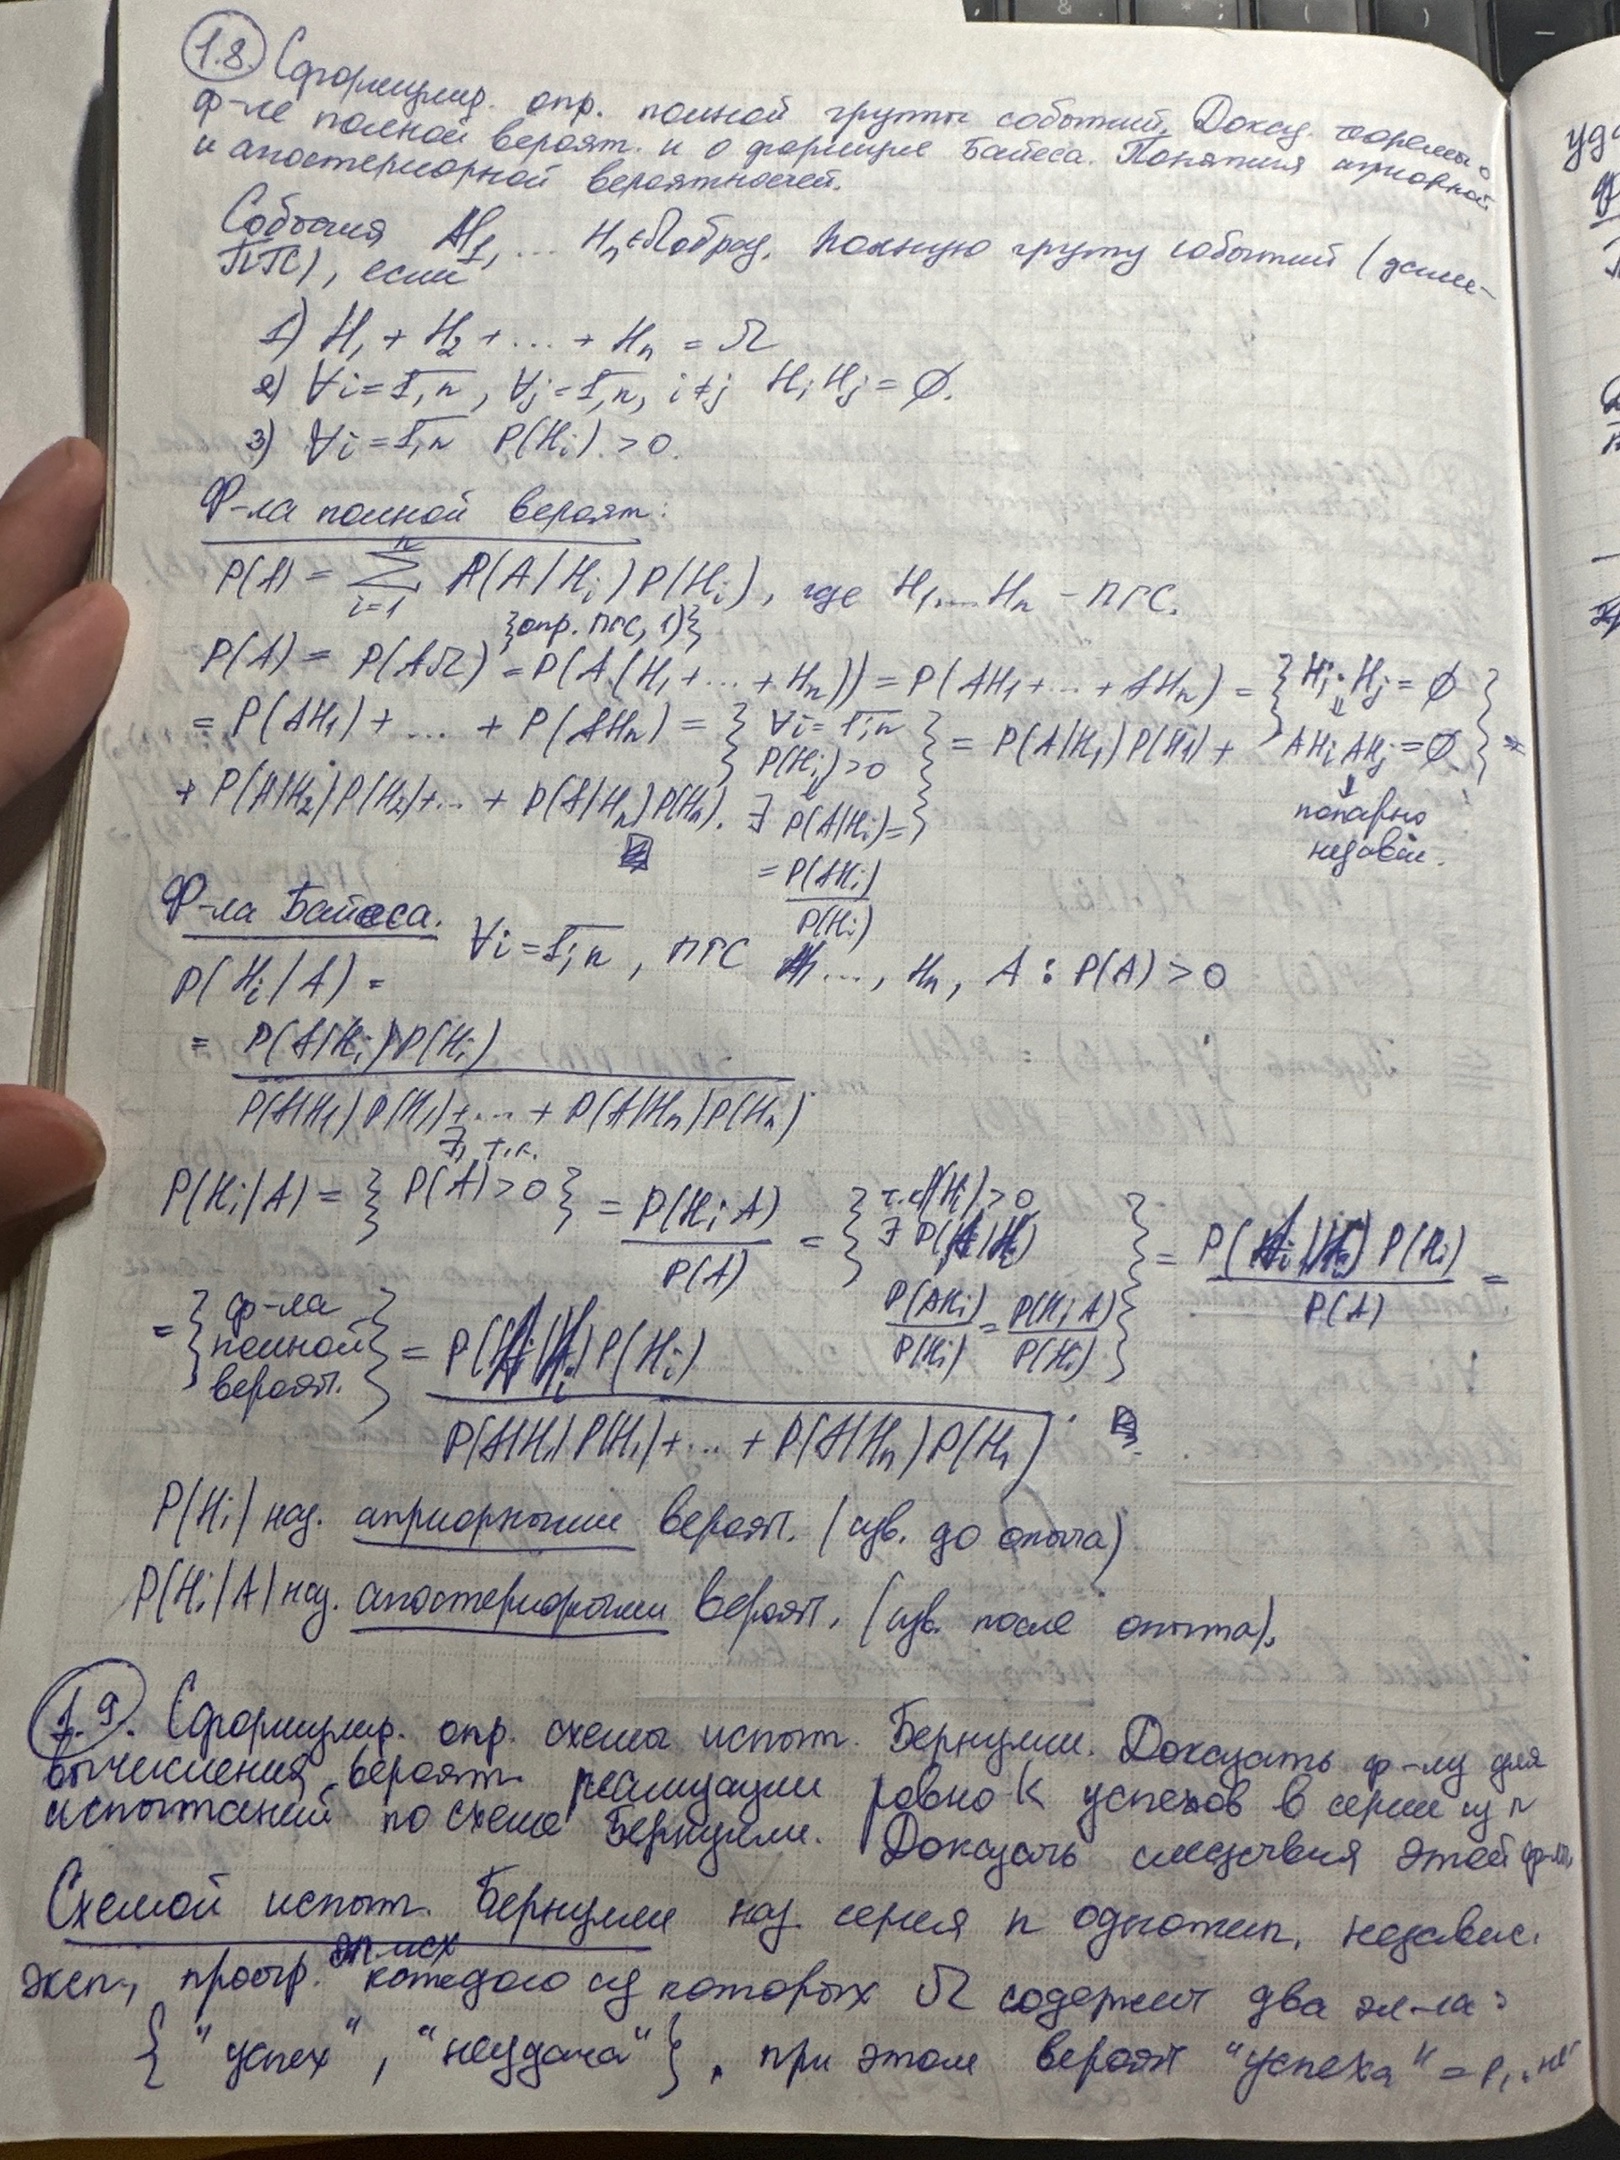 1.8. Сформулир. опр. полной группы событий. Доказ. теоремы о
ф-ле полной вероят. и о формуле Байеса. Понятия априорной
и апостериорной вероятностей.
События H₁, ... Hₙ ∈ Ω образ. полную группу событий (далее –
ПГС), если
1) H₁ + H₂ + ... + Hₙ = Ω
2) ∀i = 1,n, ∀j = 1,n, i ≠ j HᵢHⱼ = ∅.
3) ∀i = 1,n P(Hᵢ) > 0.
Ф-ла полной вероят:
P(A) = Σᵢ₌₁ⁿ P(A|Hᵢ)P(Hᵢ), где H₁...Hₙ – ПГС.
P(A) = P(AΩ) = {опр. ПГС, 1)} = P(A(H₁ + ... + Hₙ)) = P(AH₁ + ... + AHₙ) = {Hᵢ·Hⱼ = ∅ ⇓ AHᵢAHⱼ = ∅ ⇓ попарно несовм.} =
= P(AH₁) + ... + P(AHₙ) = {∀i = 1,n P(Hᵢ) > 0 ⇓ ∃ P(A|Hᵢ) = = P(AHᵢ)/P(Hᵢ)} = P(A|H₁)P(H₁) +
+ P(A|H₂)P(H₂) + ... + P(A|Hₙ)P(Hₙ).
Ф-ла Байеса.
P(Hᵢ|A) = ∀i = 1,n, ПГС H₁..., Hₙ, A : P(A) > 0
= P(A|Hᵢ)P(Hᵢ) / P(A|H₁)P(H₁) + ... + P(A|Hₙ)P(Hₙ)
P(Hᵢ|A) = {∃, т.к. P(A) > 0} = P(HᵢA)/P(A) = {т.к. P(Hᵢ) > 0 ∃ P(A|Hᵢ) P(AHᵢ)/P(Hᵢ) = P(HᵢA)/P(Hᵢ)} = P(A|Hᵢ)P(Hᵢ)/P(A) =
= {ф-ла полной вероят.} = P(A|Hᵢ)P(Hᵢ) / P(A|H₁)P(H₁) + ... + P(A|Hₙ)P(Hₙ).
P(Hᵢ) наз. априорными вероят. (изв. до опыта)
P(Hᵢ|A) наз. апостериорными вероят. (изв. после опыта).
1.9. Сформулир. опр. схемы испыт. Бернулли. Доказать ф-лу для
вычисления вероят. реализации ровно k успехов в серии из n
испытаний по схеме Бернулли. Доказать следствия этой ф-лы
Схемой испыт. Бернулли наз. серия n однотип. независ.
эксп., простр. эл. исх каждого из которых Ω содержит два эл-та:
{"успех", "неудача"}, при этом вероят "успеха" = p, „не